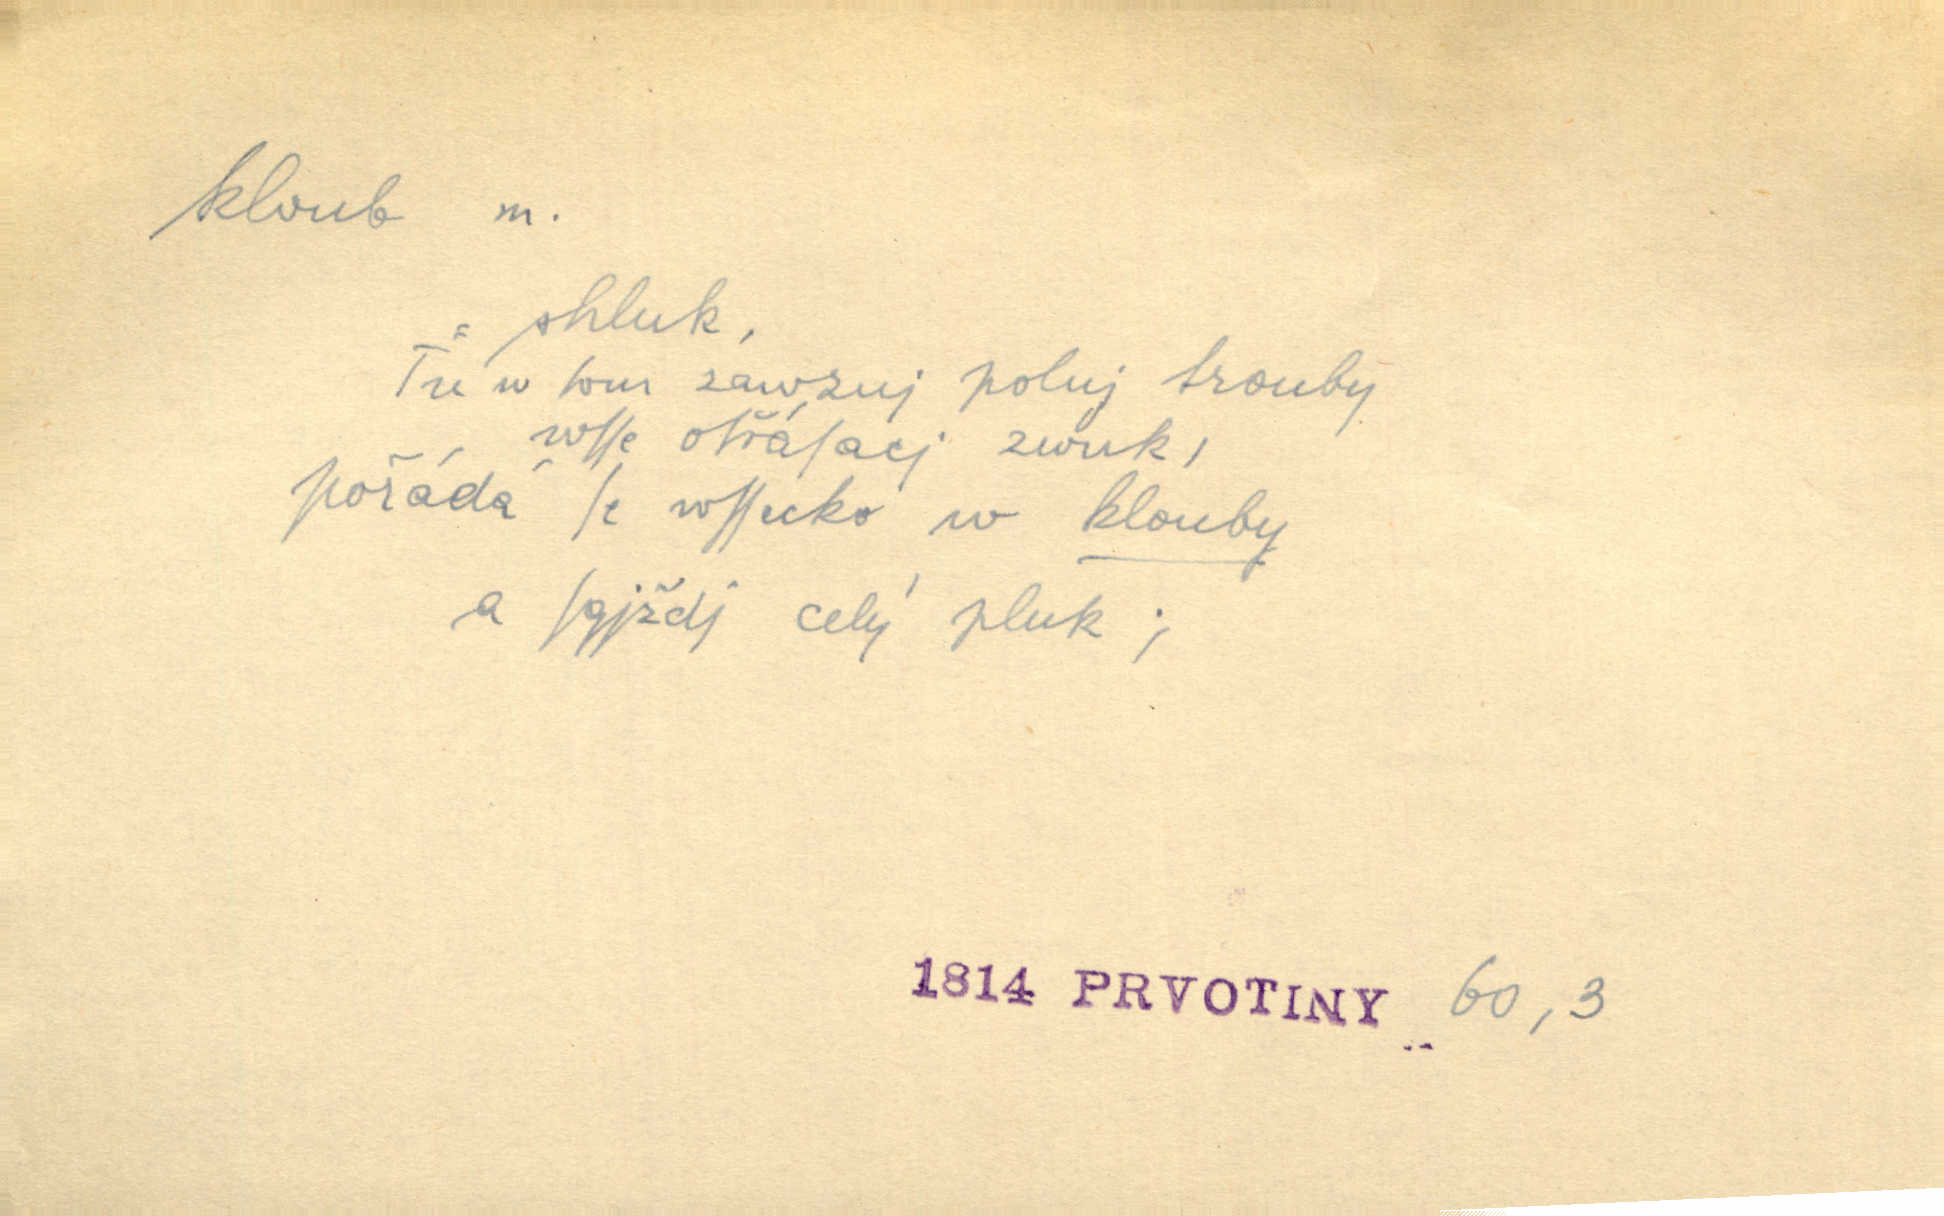 kloub m.
shluk,
Tu w tom zawzuj polnj trouby
wsse otřásacj zwuk,
pořádá se wssecko w klouby
a sgjždj celý pluk;
1814 PRVOTINY 60,3